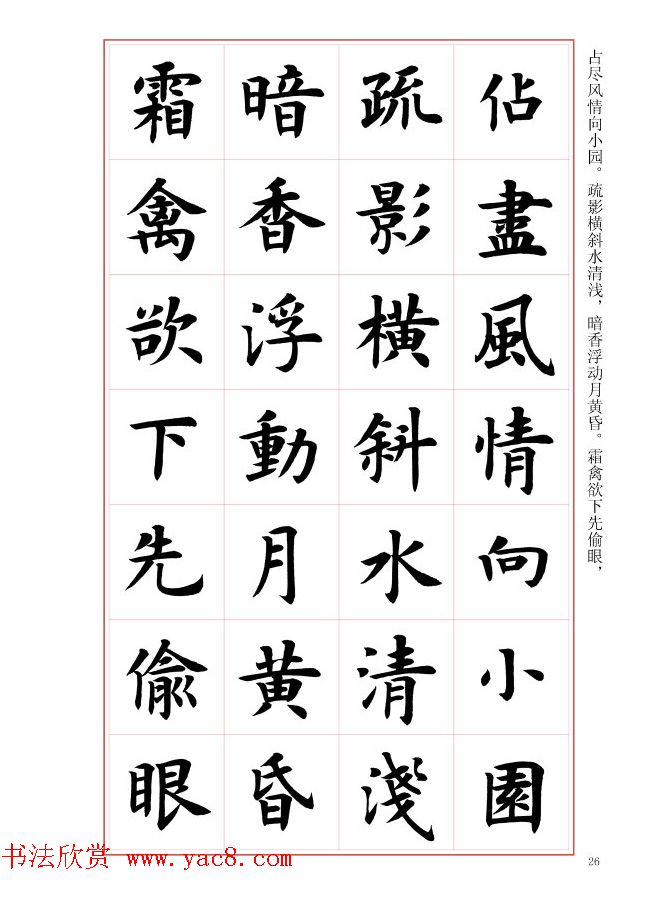 占尽风情向小园。疏影横斜水清浅，暗香浮动月黄昏。霜禽欲下先偷眼，
佔盡風情向小園
疏影横斜水清淺
暗香浮動月黄昏
霜禽欲下先偷眼
书法欣赏 www.yac8.com
26